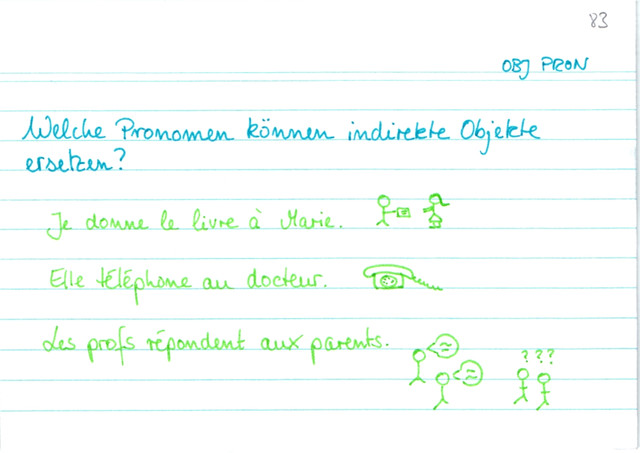 83
OBJ PRON
Welche Pronomen können indirekte Objekte
ersetzen?
Je donne le livre à Marie.
Elle téléphone au docteur.
Les profs répondent aux parents.
? ? ?